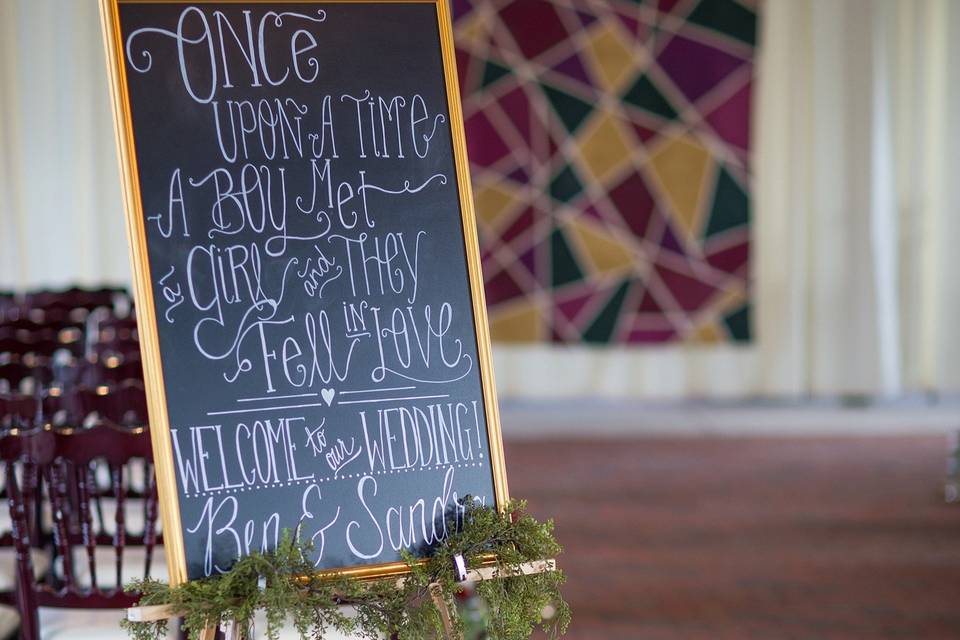 Once
Upon A Time
A Boy Met
a Girl and They
Fell in Love
WELCOME to our WEDDING!
Ben & Sandra